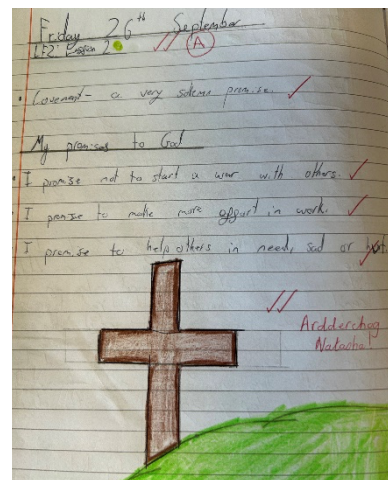 Friday 26th September
LF2: Lesson 2
A
• Covenant - a very solemn promise.
My promises to God
• I promise not to start a war with others.
• I promise to make more effort in work.
• I promise to help others in need, sad or hurt.
Ardderchog
Natasha!